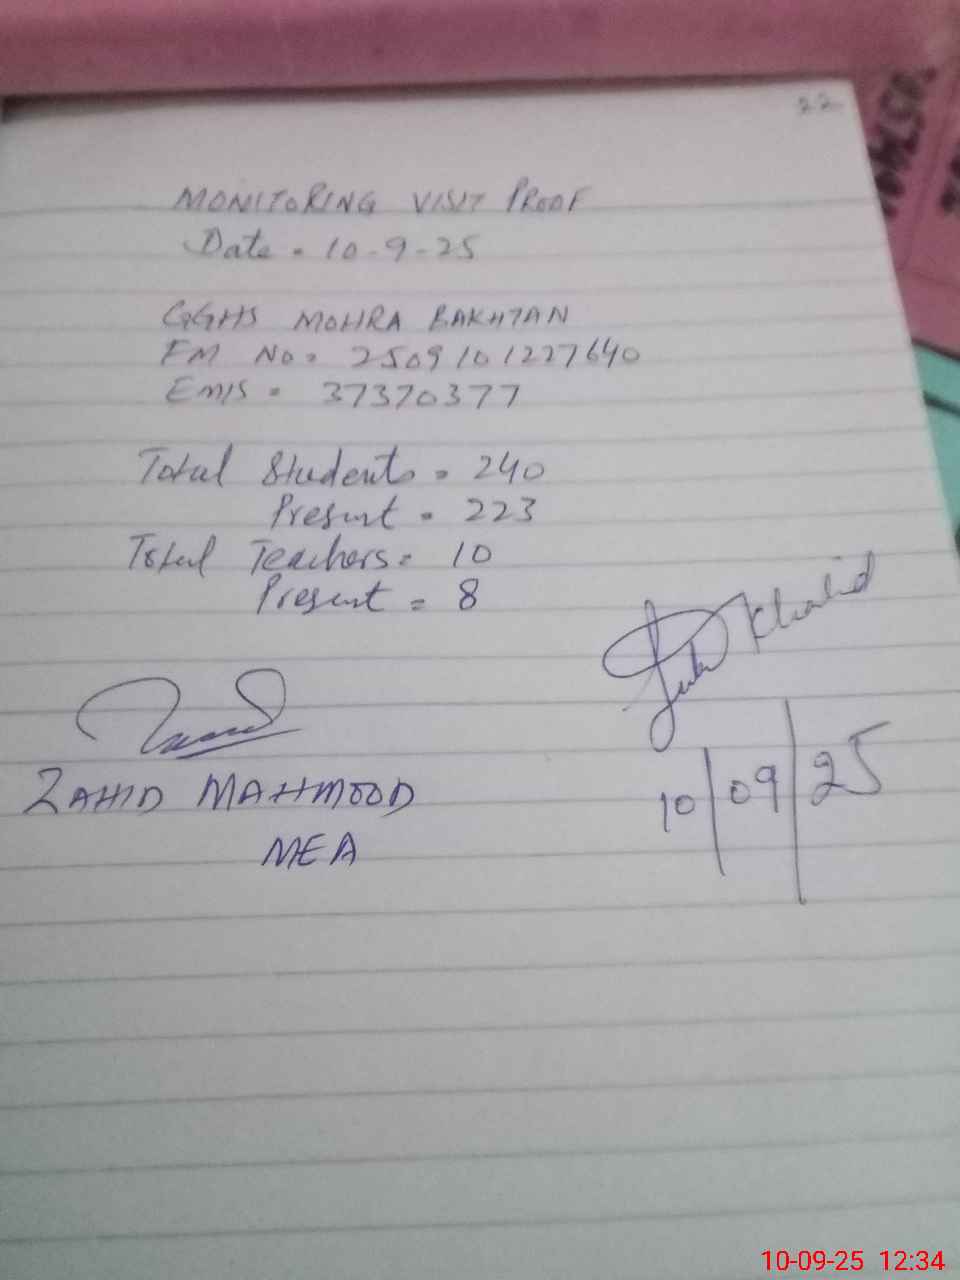 22
MONITORING VISIT PROOF
Date = 10-9-25
GGHS MOHRA BAKHTAN
FM No = 2509101227640
EMIS = 37370377
Total Students = 240
Present = 223
Total Teachers = 10
Present = 8
Khalid
10/09/25
ZAHID MAHMOOD
MEA
10-09-25 12:34